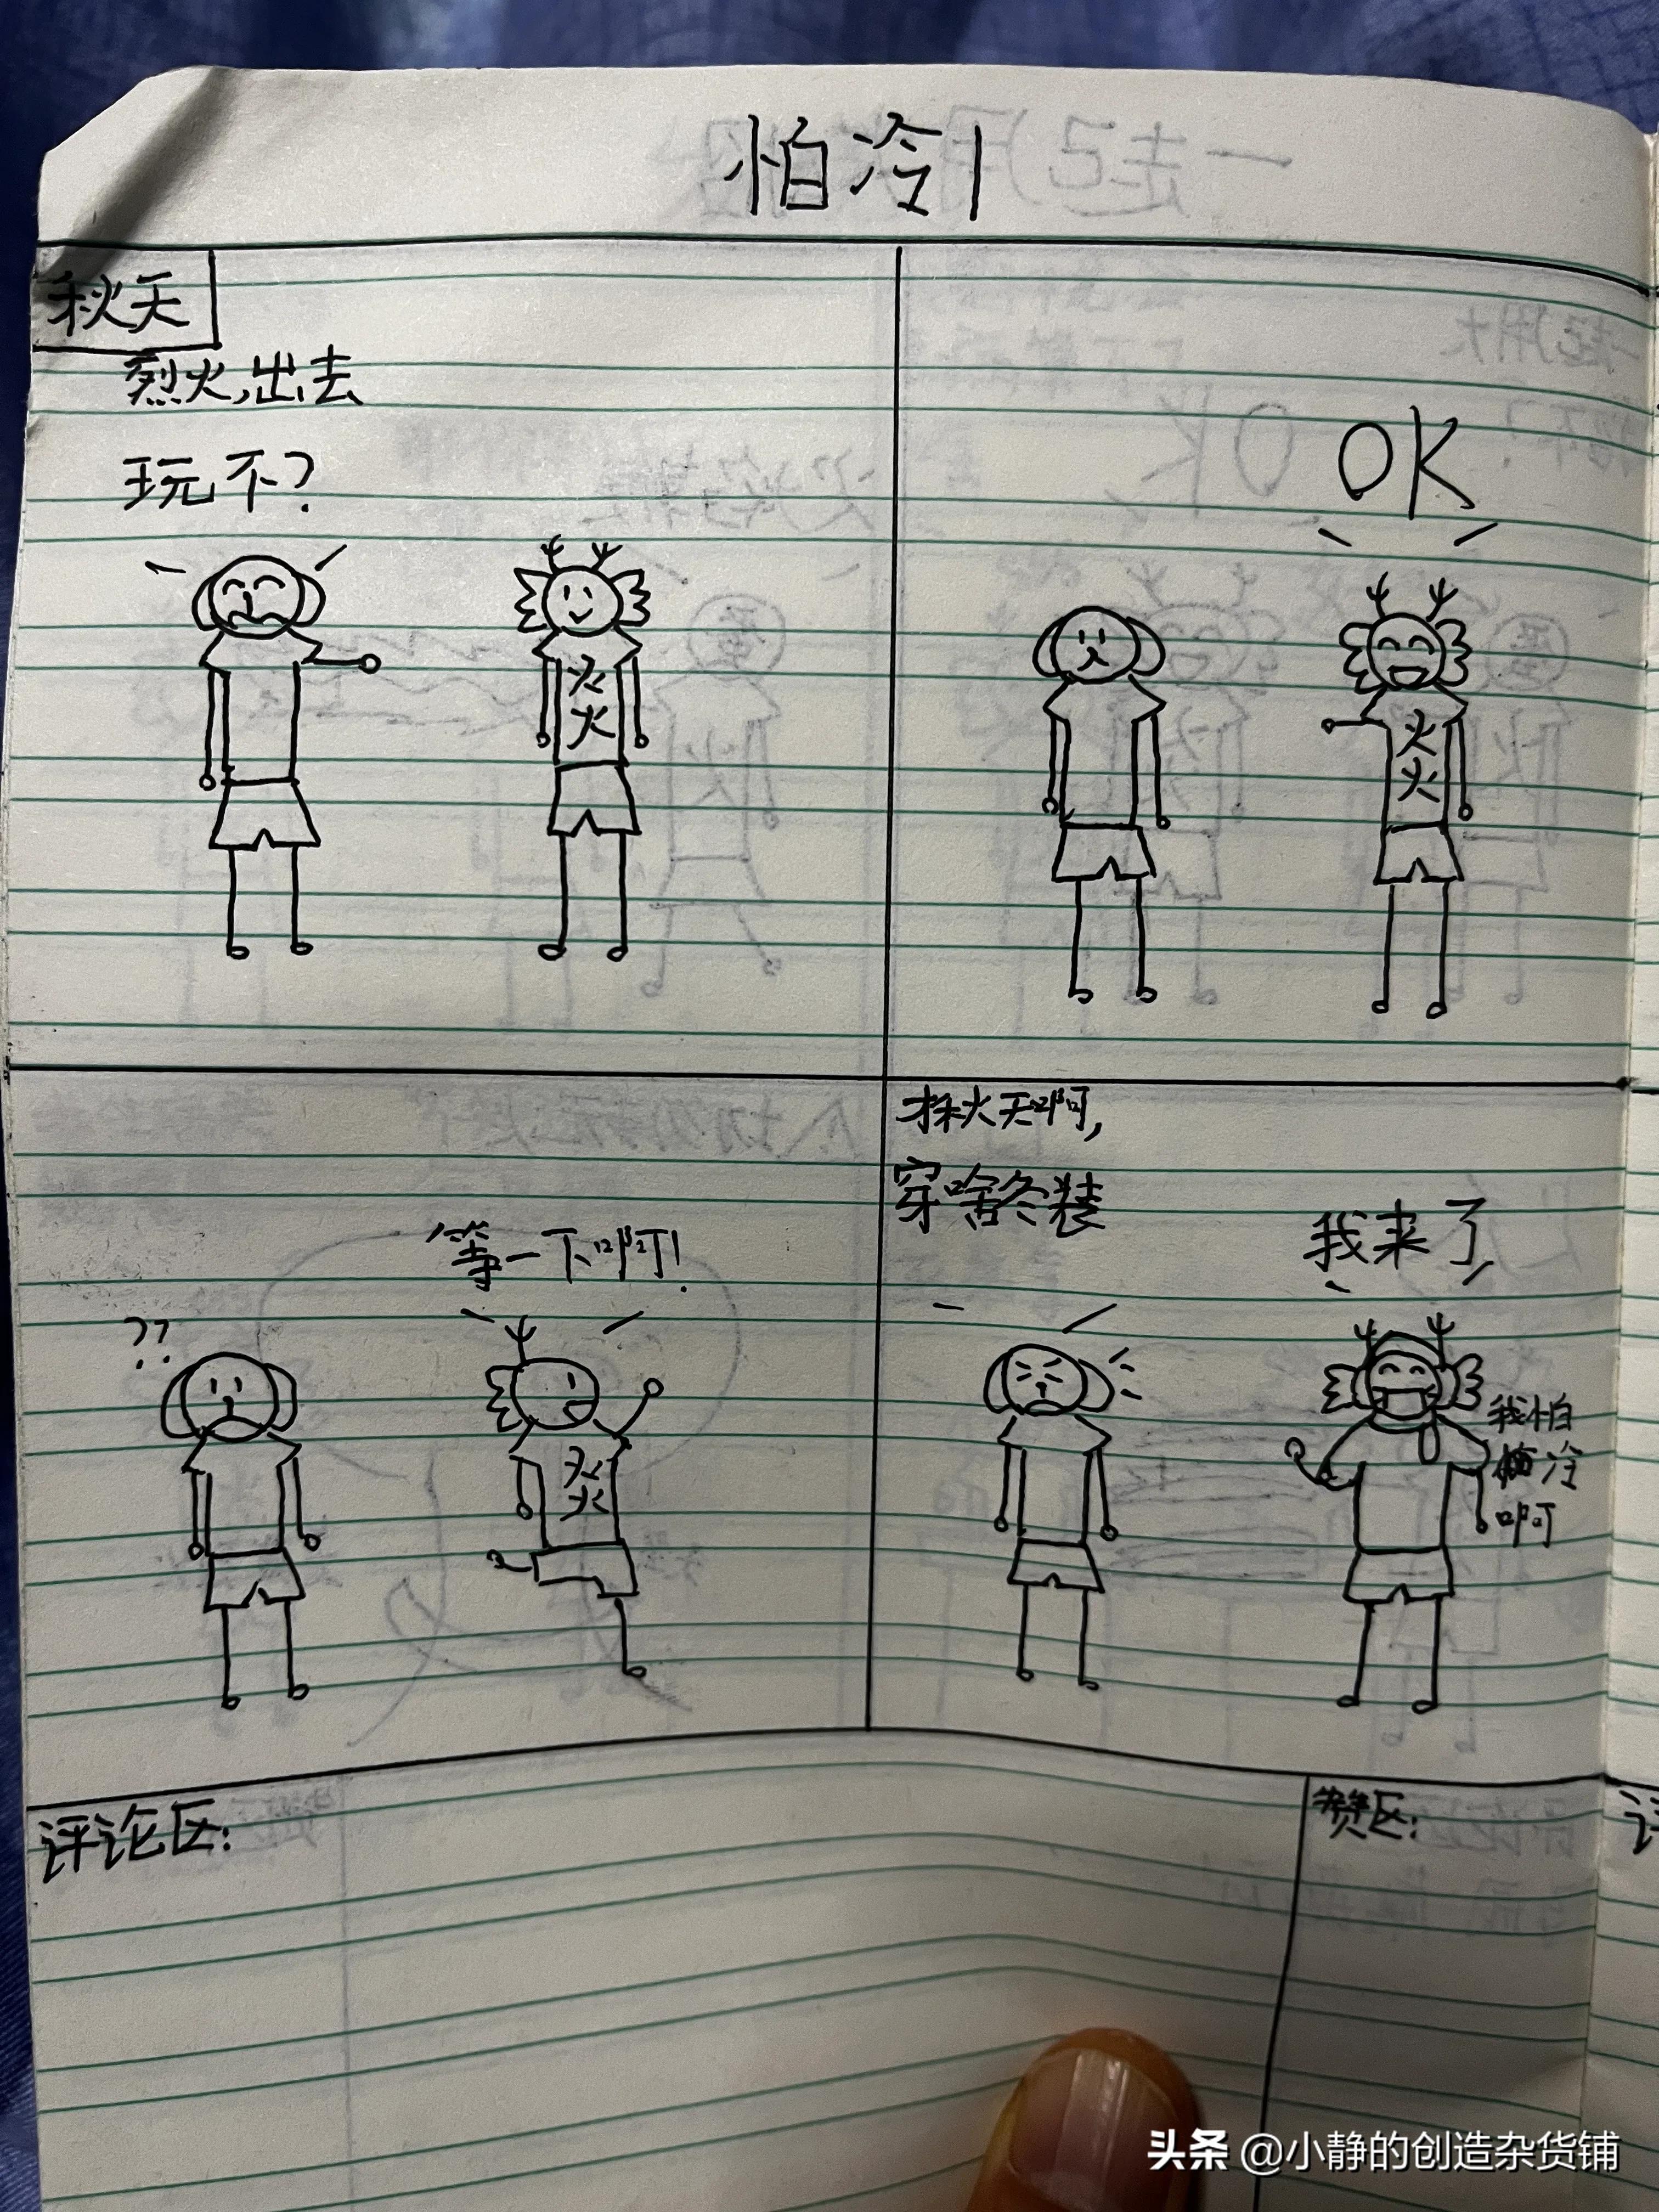 怕冷1
秋天
烈火,出去
玩不?
火
火
OK
火
火
等一下啊!
??
火
火
才秋天啊,
穿啥冬装
我来了
我怕
冷
啊
评论区:
赞区:
头条 @小静的创造杂货铺